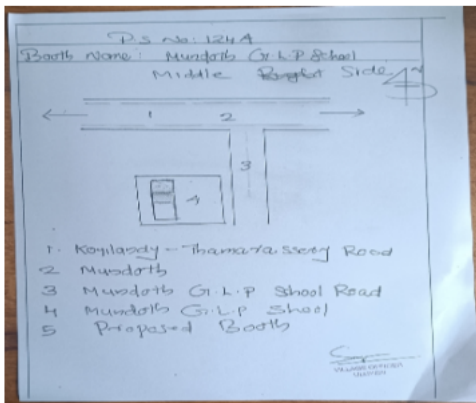 P.S No: 124A
Booth Name: Mundoth G.L.P School
Middle Side
N
1 2
3
4
1. Koyilandy - Thamarassery Road
2 Mundoth
3 Mundoth G.L.P School Road
4 Mundoth G.L.P Shool
5 Proposed Booth
VILLAGE OFFICER